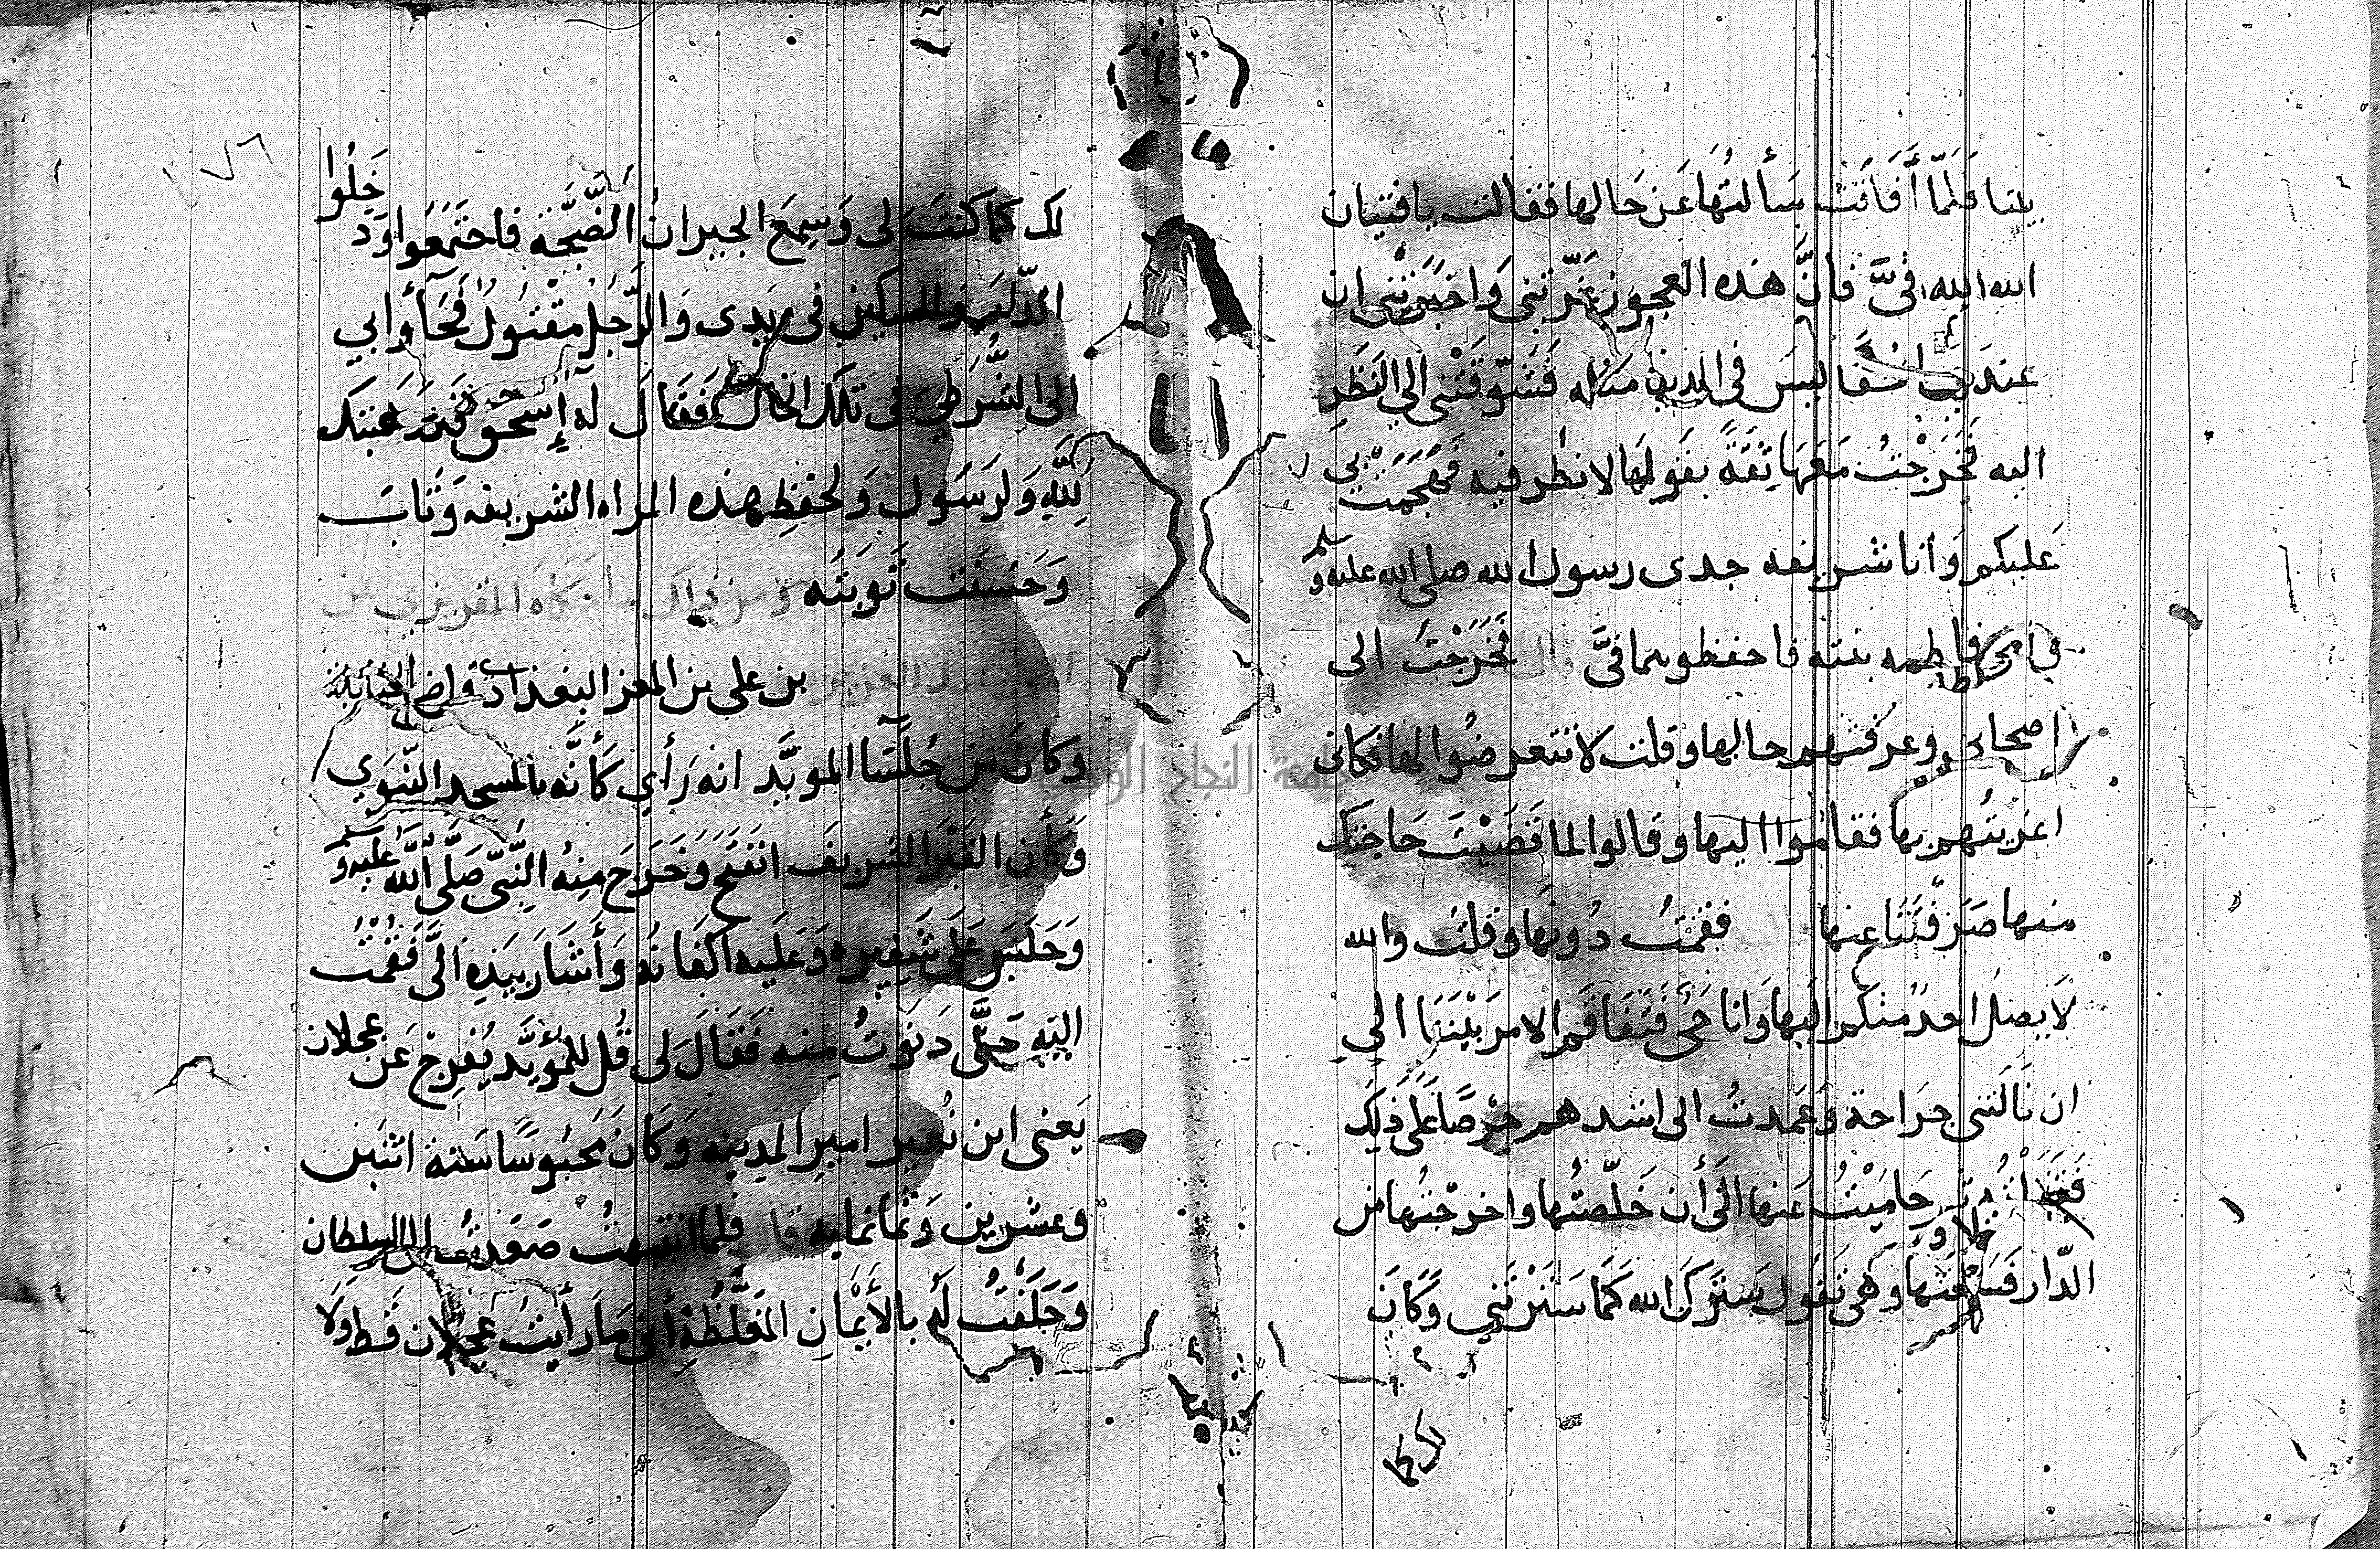 بيننا فَلَمَّا أَفَاقَتْ سَأَلتُهَا عَن حَالِهَا فَقَالت يا فتيان
الله الله فىَّ فانَّ هَذه العجوز غَرّتنى وَاخبَرَتْنى ان
عندهَا حُقّا ليسَ فى المدينه مثله فَشَوَّقَتْنى الي النَظَرِ
اليه فَخَرَجْتُ مَعَهَا ثِقَةً بقَولهَا لانظر فيه فَهَجَمَتْ بي
عَليكم وَأنا شريفه جدى رسول الله صلى الله عليه وسلم
وامى فاطمه بنته فاحفظوهما فىَّ قال فَخَرَجْتُ الى
اصحابى وعرفتهم حالها وقلت لا تتعرضُوا لها فكانى
اغريتُهم بها فقامُوا اليها وقالوا لما قَضَيْتَ حَاجتك
منها صَرَفْتَنَا عنها قال فقمتُ دُونهَا وقلتُ والله
لَا يصل احدٌ منكم اليهَا وَانا حَىّ فَتفَاقَم الامر بَيْنَنَا الي
ان نَالَتنى جرَاحة وَعَمدتُ الى اشدهم حِرْصًا عَلَى ذَلِكَ
فَقَتَلْتُهُ ثم حَامَيْتُ عَنها الَى أن خَلّصتُها واخرجْتُها من
الدّار فَسَمعْتها وهى تَقُول سَتَرَكَ الله كَمَا سَتَرْتَنى وَكَانَ
لك
لك كما كنتَ لى وَسمِعَ الجيرانُ الضَّجَّةَ فاجتَمَعُوا وَدَخَلُوا
الينَا والسكين فى يَدى وَالرَّجُلُ مقْتوُلٌ فَجَآوُا بي
الى الشُّرَطِي فى تلك الحال فَقَالَ لهُ إِسْحَق قَدْ عَفيْتك
لِلَّهِ وَلرَسُول وَلحفظ هذه المراه الشريفه وَتَابَ
وَحَسُنَت تَوبَتُه وَمن ذلك مَا حَكَاهُ المقريزي عن
عبد العزيز بن على بن المعز البغدادى قاضى الحنابلة
وكانَ من جُلَسَآ المويَّد انه رَأي كَأنَّه بالمسجد النّبَوي
وَكأَن القَبْرَ الشريفَ انفتح وَخَرَجَ مِنهُ النَّبىّ صَلَّى اللَّهُ عَلَيه وسلم
وَجَلسَ عَلَى شَفِيره وَعَلَيه أكفَانُه وَأَشَارَ بيَدِه الَىَّ فَقُمْتُ
اليَه حَتَّى دَنَوتُ مِنه فَقَالَ لى قُل لِلمُؤيَّد يُفْرِجْ عَن عجلان
يَعنى ابن نُعَير امير المدينه وَكَان مَحْبُوسًا سَنة اثنَين
وعشرين وَثمانمايه قَال فلما انتبهتُ صَعَدتُ الى السلطان
وَحَلَفْتُ لَه بالأَيْمَانِ المُغَلَّظَةِ أنى مَا رَأَيتُ عَجلان قَط وَلَا
١٧٦
جامعة النجاح الوطنية